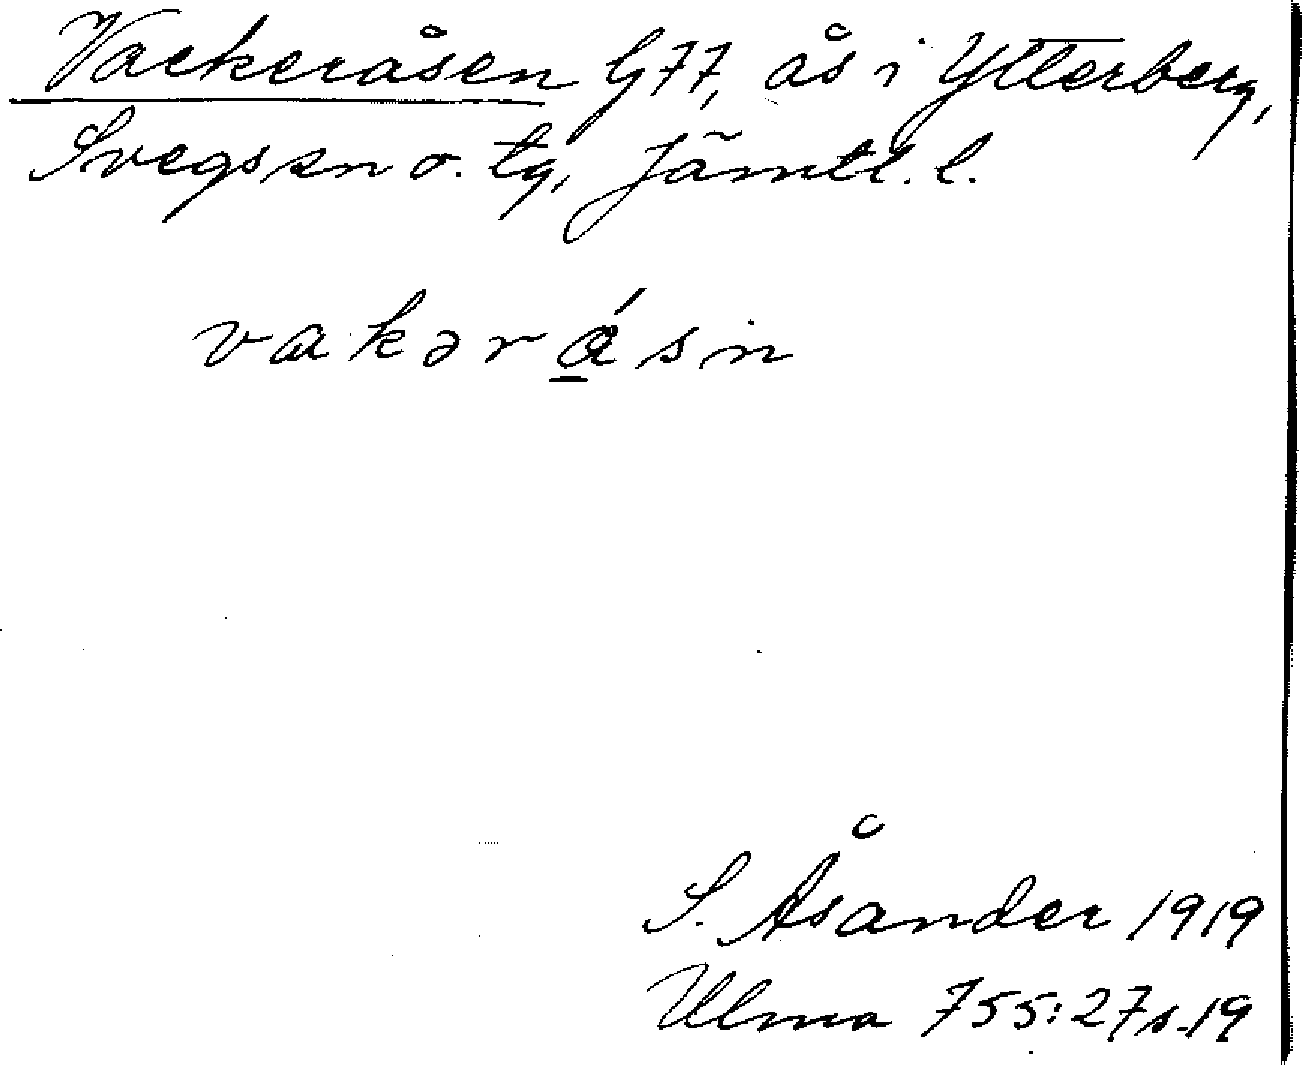 Vackeråsen G77, ås i Ytterberg,
Svegs sn o. tg, Jämtl. l.
vakəråsin
S. Åsander 1919
Ulma 755:27 s. 19